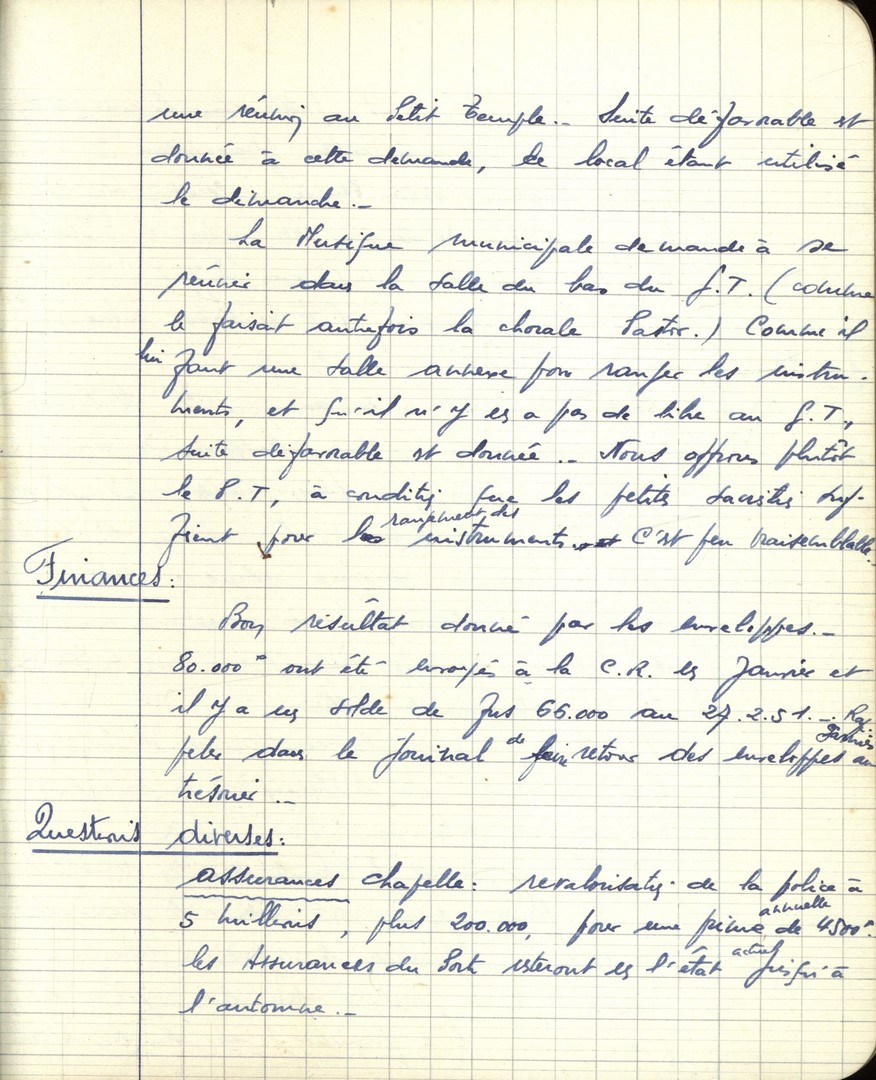 une réunion au Petit Temple.- Suite défavorable est
donnée à cette demande, le local étant utilisé
le dimanche.-
La Musique municipale demande à se
réunir dans la salle du bas du G.T. (comme
le faisait autrefois la chorale Pastor.) Comme il
lui faut une salle annexe pour ranger les instru-
ments, et qu'il n'y en a pas de libre au G.T.,
suite défavorable est donnée.- Nous offrons plutôt
le P.T, à condition que les petites sacristies suf-
fisent pour le rangement des instruments. C'est peu vraisemblable.
Finances:
Bon résultat donné par les enveloppes.-
80.000 F ont été envoyés à la C.R. en Janvier et
il y a un solde de frs 66.000 au 27.2.51.- Rap
peler dans le Journal de retour des enveloppes au
trésorier.-
Questions diverses:
assurances chapelle: revalorisation de la police à
5 millions, plus 200.000, pour une prime annuelle de 4500 F.
les Assurances du resteront en l'état actuel jusqu'à
l'automne.-